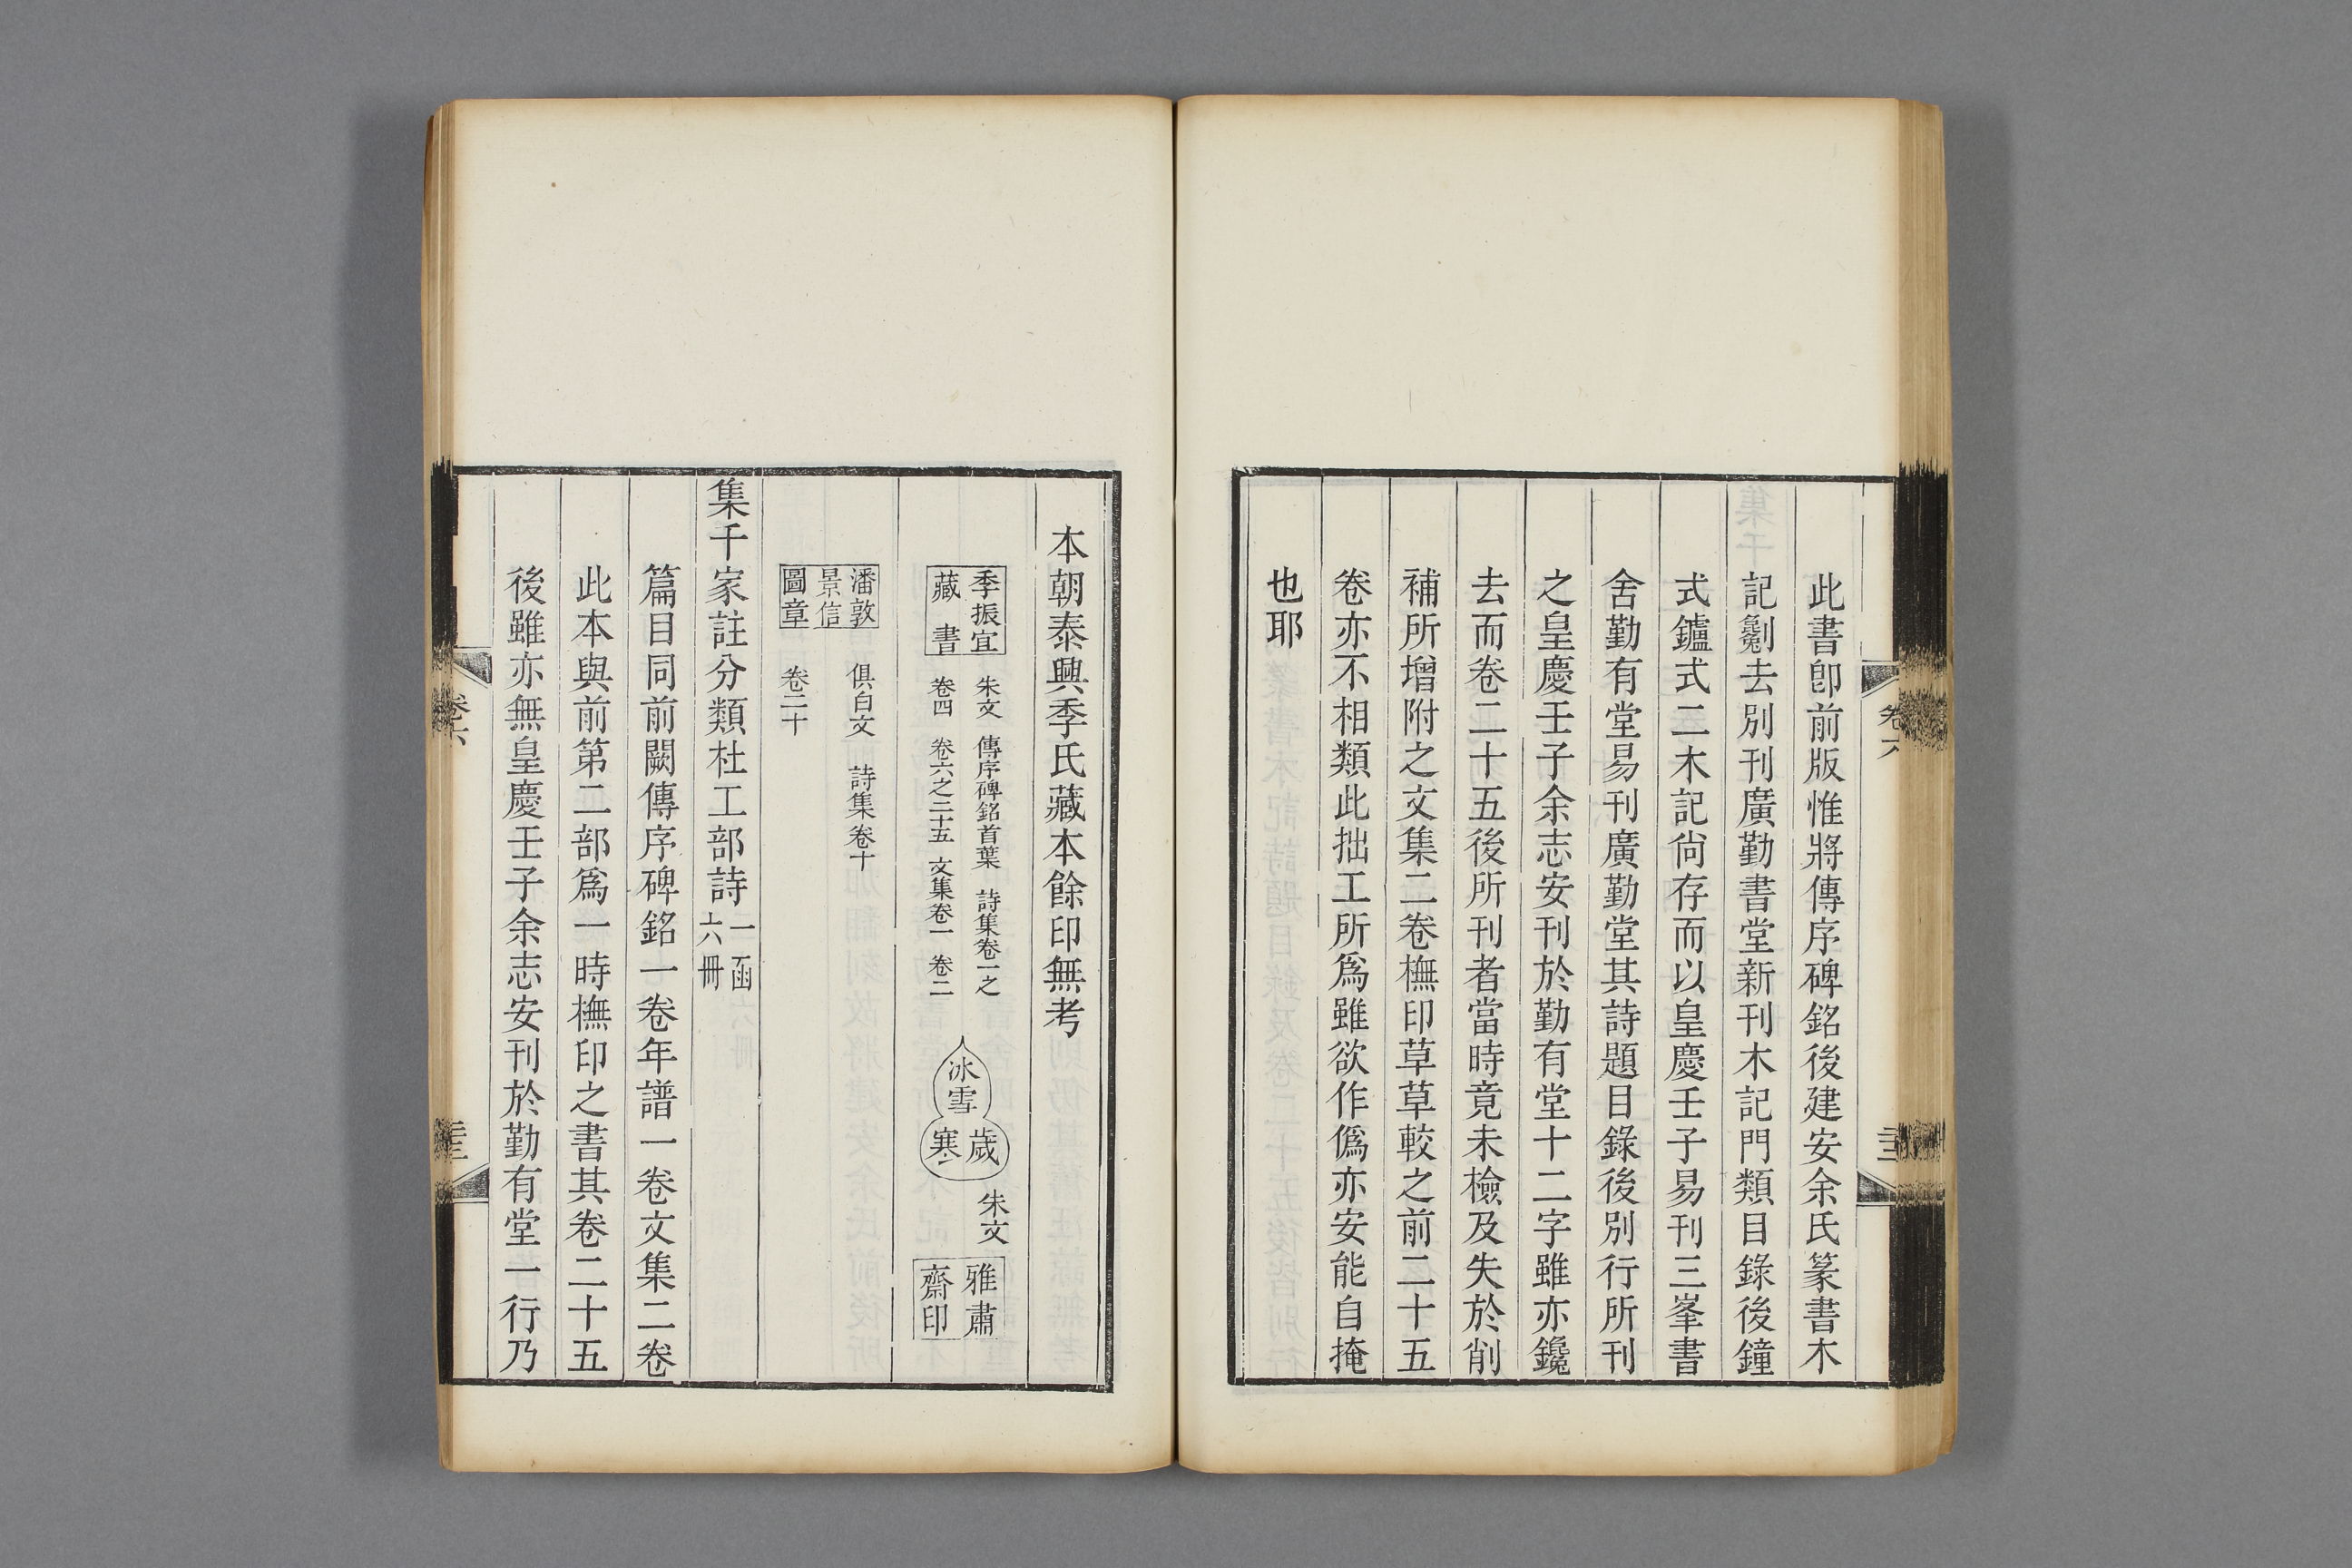 此書卽前版惟將傳序碑銘後建安余氏篆書木
記劖去別刊廣勤書堂新刊木記門類目錄後鐘
式鑪式二木記尙存而以皇慶壬子易刊三峯書
舍勤有堂易刊廣勤堂其詩題目錄後別行所刊
之皇慶壬子余志安刊於勤有堂十二字雖亦鑱
去而卷二十五後所刊者當時竟未檢及失於削
補所增附之文集二卷橅印草草較之前二十五
卷亦不相類此拙工所爲雖欲作僞亦安能自掩
也耶
卷六
本朝泰興季氏藏本餘印無考
季振宜
藏書
朱文 傳序碑銘首葉 詩集卷一之
卷四 卷六之二十五 文集卷一 卷二
冰雪
歲
寒
朱文
雅肅
齋印
潘敦
景信
圖章
俱白文 詩集卷十
卷二十
集千家註分類杜工部詩 一函
六冊
篇目同前闕傳序碑銘一卷年譜一卷文集二卷
此本與前第二部爲一時橅印之書其卷二十五
後雖亦無皇慶壬子余志安刊於勤有堂一行乃
卷六